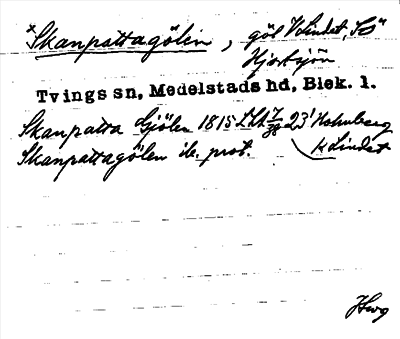 *Skanpattagölen, göl V Lindet, SO
Hjortsjön
Tvings sn, Medelstads hd, Blek. l.
Skanpatta Sjölen 1815 LAA 23' Holmberg
Skanpattagölen ib. prot. k Lindet
Hwg